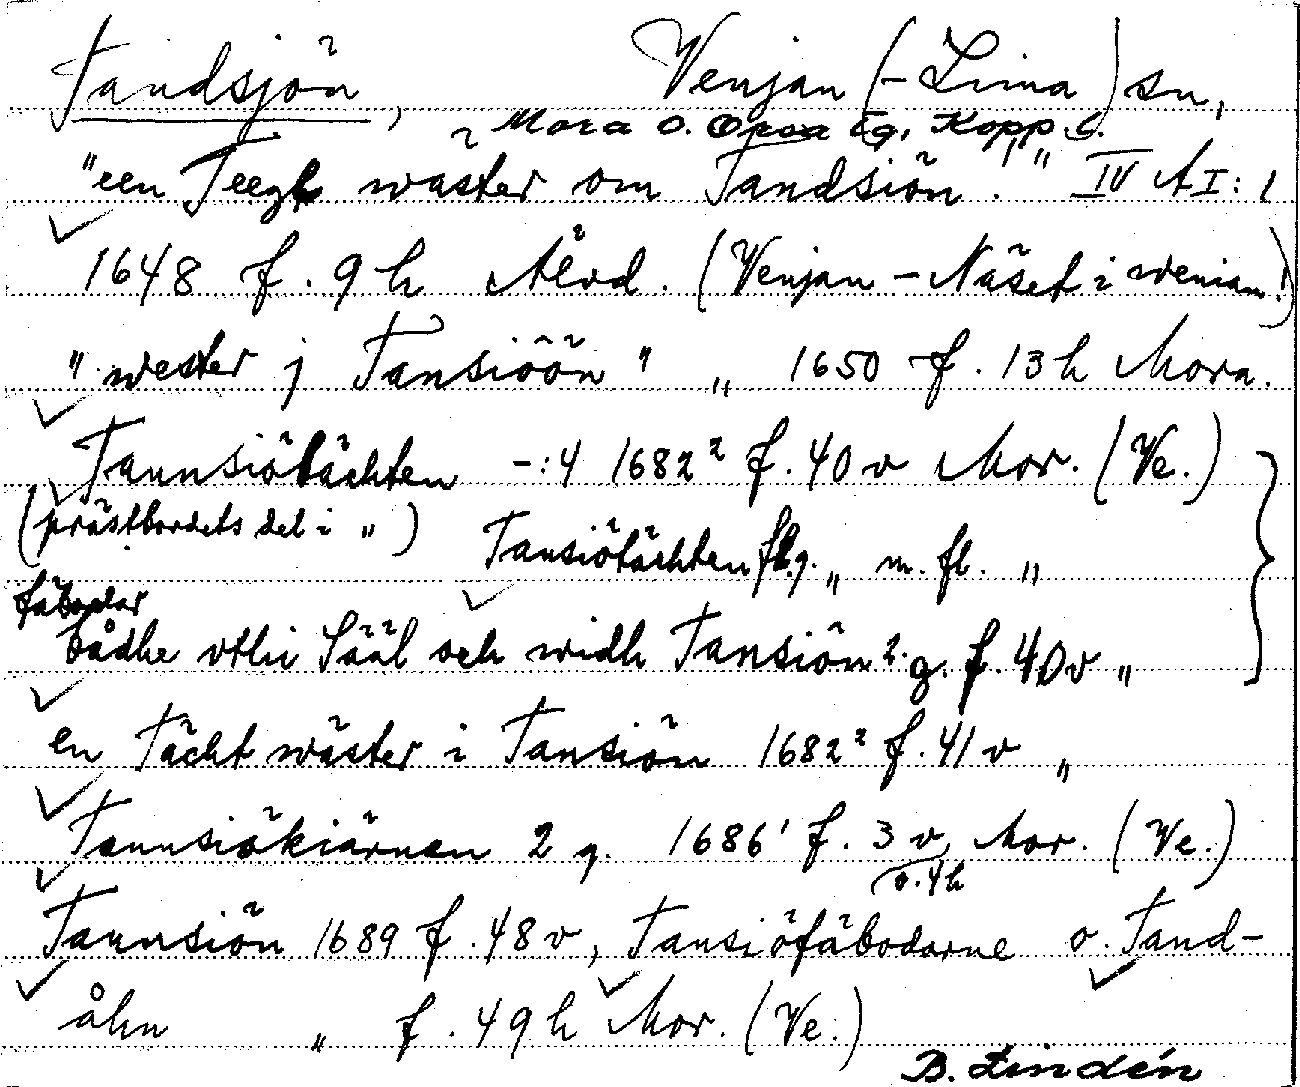 Tandsjön, Venjan (- Lima) sn,
Mora o. Orsa tg, Kopp. l.
"een Teegh waster om Tandsiön." IV AI:1
1648 f. 9 h Älvd. (Venjan - Näset i Weniam!)
"wester j Tansiöön" " 1650 f. 13 h Mora.
Tannsiötächten -:4 1682² f. 40 v Mor. (Ve.)
(prästbordets del i ")
Tansiötächten flg. " m. fl. "
fäbodar
bådhe vthi Sääl och widh Tansiön 2 g. f. 40 v "
en Tächt wäster i Tansiön 1682² f. 41 v "
Tannsiökiärnen 2 g. 1686¹ f. 3 v, Mor. (Ve.)
o. 4 h
Tannsiön 1689 f. 48 v, Tansiöfäbodarne o. Tand-
åhn " f. 49 h Mor. (Ve.)
B. Lindén